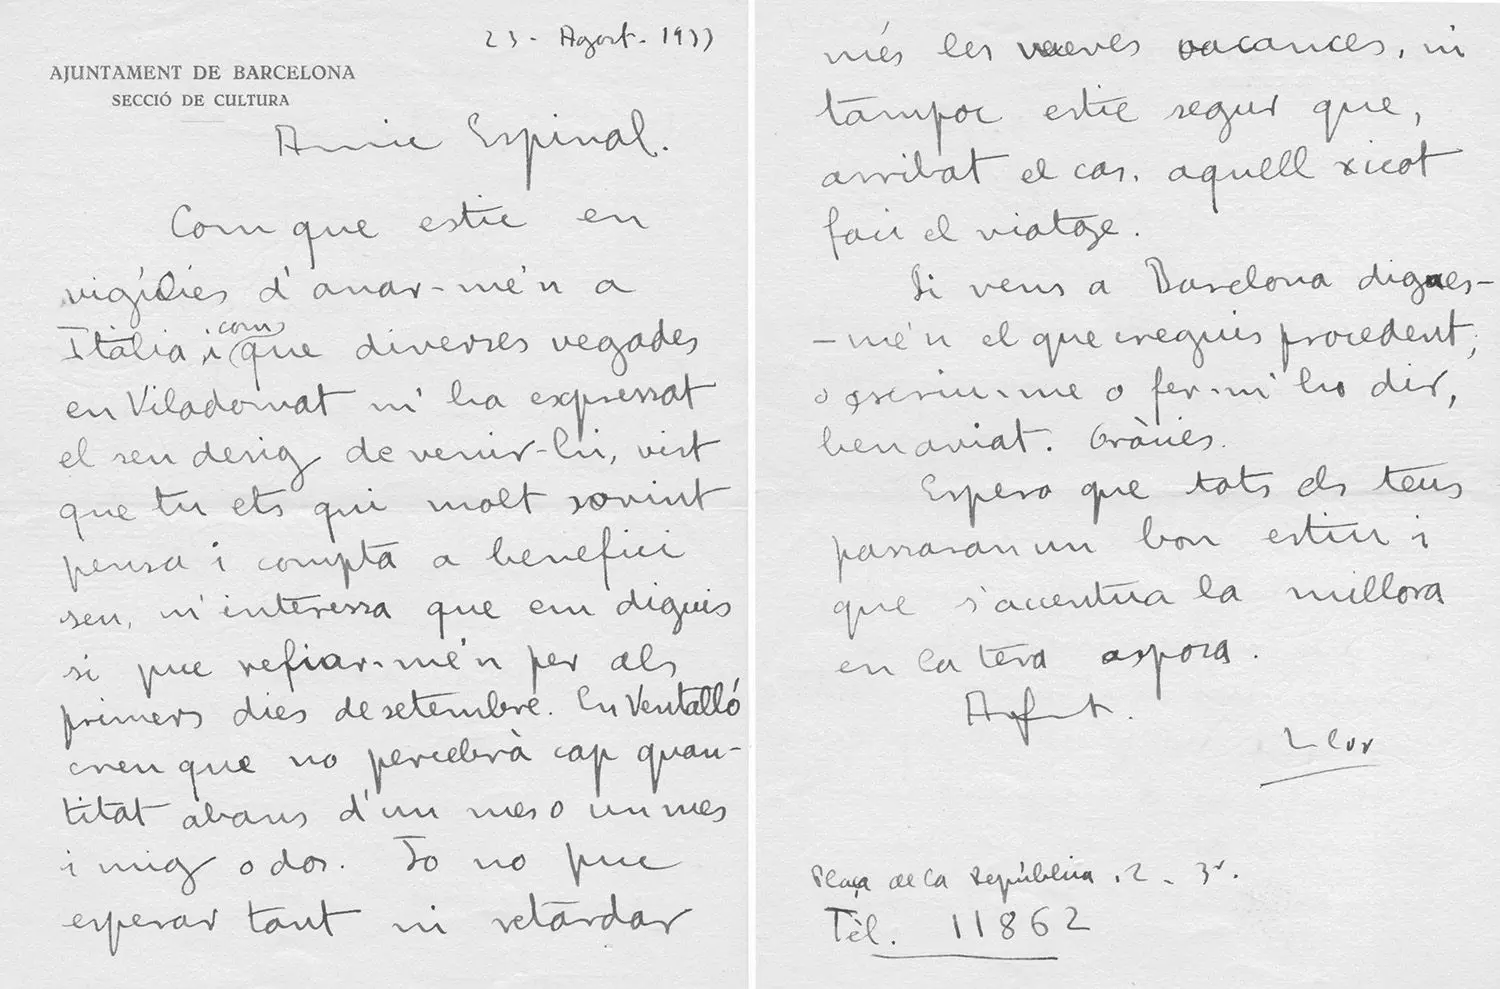 23 - Agost - 1933
AJUNTAMENT DE BARCELONA
SECCIÓ DE CULTURA
Amic Espinal.
Com que estic en
vigílies d'anar-me'n a
Itàlia, i com que diverses vegades
en Viladomat m'ha expressat
el seu desig de venir-hi, vist
que tu ets qui molt sovint
pensa i compta a benefici
seu, m'interessa que em diguis
si puc refiar-me'n per als
primers dies de setembre. En Ventalló
creu que no percebrà cap quan-
titat abans d'un mes o un mes
i mig o dos. Jo no puc
esperar tant ni retardar
més les meves vacances, ni
tampoc estic segur que,
arribat el cas, aquell xicot
faci el viatge.
Si vens a Barcelona digues-
-me'n el que creguis procedent,
o escriu-me o fer-m'ho dir,
ben aviat. Gràcies.
Espero que tots els teus
passaran un bon estiu i
que s'accentua la millora
en la teva esposa.
Afmt.
Llor
Plaça de la República, 2 - 3r.
Tèl. 11862